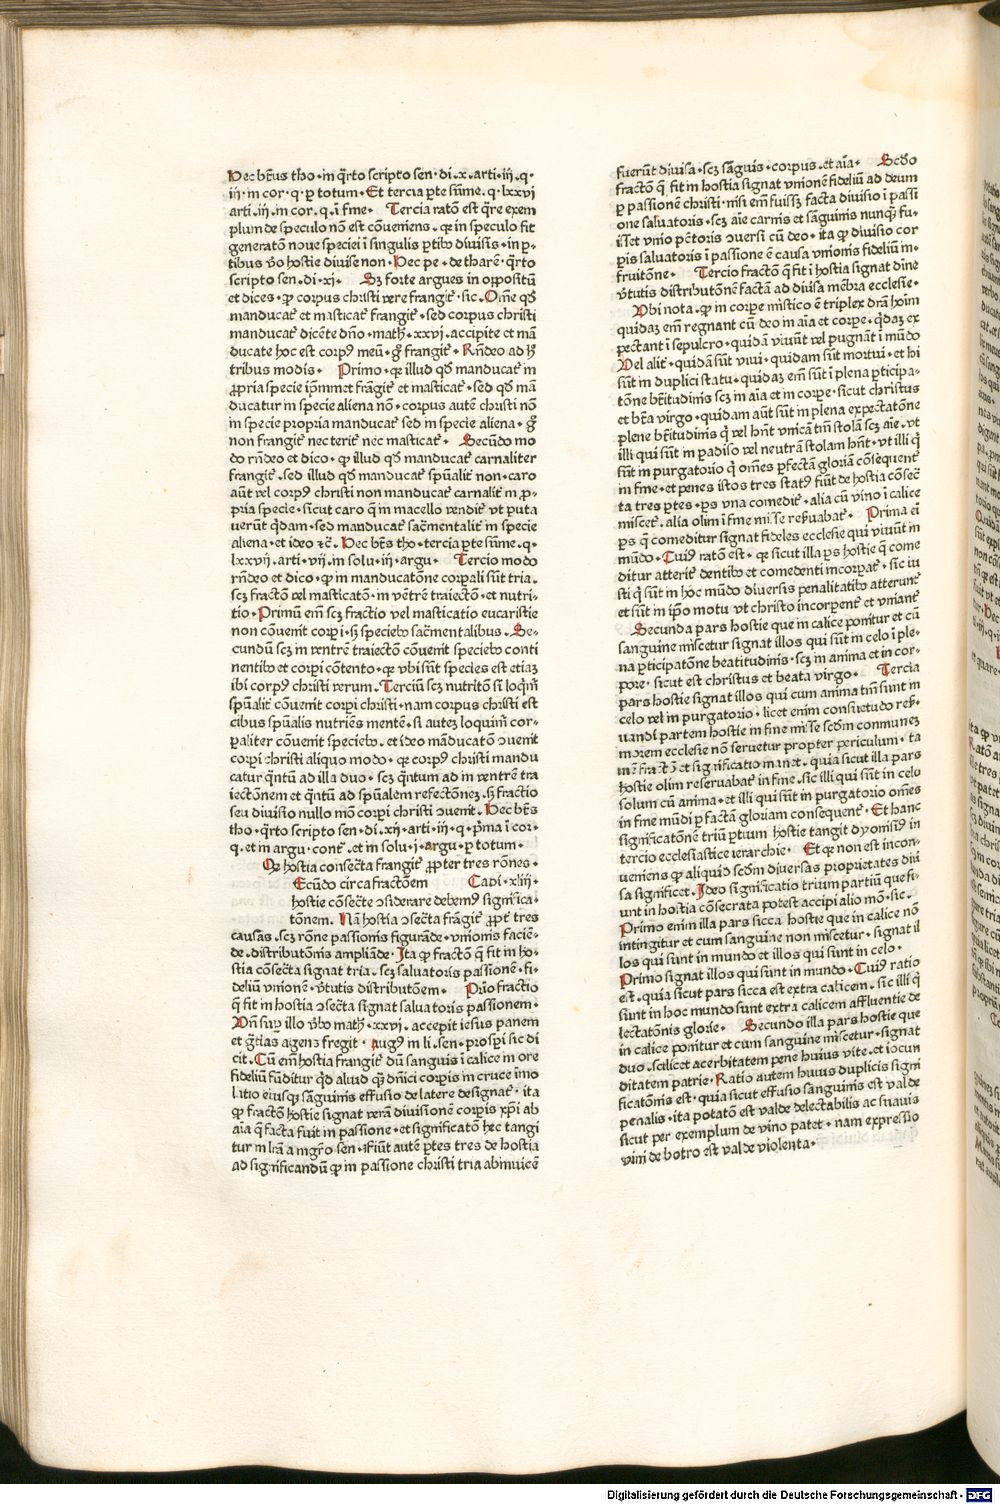 Hec bt̄us tho · in q̄rto scripto sen · di · x · arti · iij · q ·
iij · in cor · q · p totum · Et tercia pte sūme · q · lxxvi
arti · iij · in cor · q · ī fine · Tercia ratō est q̄re exem
plum de speculo nō est cōueniens · qꝛ in speculo fit
generatō noue speciei ī singulis ptibꝰ diuisis · in p-
tibus v̄o hostie diuise non · Hec pe · de tharē · q̄rto
scripto sen · di · xj · Sꝫ forte argues in oppositū
et dices · ꝙ corpus christi vere frangit᷑ · sic · Om̄e qd̄
manducat᷑ et masticat᷑ frangit᷑ · sed corpus christi
manducat᷑ dicēte dn̄o · math · xxvi · accipite et mā
ducate hoc est corpꝰ meū · g̊ frangit᷑ · Rn̄deo ad h̄
tribus modis · Primo · qꝛ illud qd̄ manducat᷑ in
ꝓpria specie ip̄mmet frāgit᷑ et masticat᷑ · sed qd̄ mā
ducatur in specie aliena nō · corpus autē christi nō
in specie propria manducat᷑ sed in specie aliena · g̊
non frangit᷑ nec terit᷑ nec masticat᷑ · Secūdo mo
do rn̄deo et dico · ꝙ illud qd̄ manducat᷑ carnaliter
frangit᷑ · sed illud qd̄ manducat᷑ spūalit᷑ non · caro
aūt vel corpꝰ christi non manducat᷑ carnalit᷑ in p̄-
pria specie · sicut caro q̄ in macello vendit᷑ vt puta
verūt q̄dam · sed manducat᷑ sac̄mentalit᷑ in specie
aliena · et ideo ⁊c̄ · Hec bt̄s tho · tercia pte sūme · q ·
lxxvij · arti · vij · in solu · iij · argu · Tercio modo
rn̄deo et dico · ꝙ in manducatōne corpali sūt tria ·
scꝫ fractō vel masticatō · in vētrē traiectō · et nutri-
tio · Primū em̄ scꝫ fractio vel masticatio eucaristie
non cōuenit corpi · sꝫ speciebꝰ sac̄mentalibus · Se-
cundū scꝫ in ventrē traiectō cōuenit speciebꝰ conti
nentibꝰ et corpi cōtento · qꝛ vbi sūt species est etiaꝫ
ibi corpꝰ christi verum · Terciū scꝫ nutritō si loq̄m̄
spūalit᷑ cōuenit corpi christi · nam corpus christi est
cibus spūalis nutriēs mentē · si auteꝫ loquim̄ cor-
paliter cōuenit speciebꝰ · et ideo māducatō ↄuenit
corpi christi aliquo modo · qꝛ corpꝰ christi mandu
catur q̄ntū ad illa duo · scꝫ q̄ntum ad in ventrē tra
iectōnem et q̄ntū ad spūalem refectōneꝫ · sꝫ fractio
seu diuisio nullo mō corpi christi ↄuenit · Hec bt̄s
tho · q̄rto scripto sen · di · xij · arti · iij · q · p̄ma ī cor ·
q · et in argu · cont᷑ · et in solu · j · argu · p totum ·
Qꝛ hostia consecta frangit᷑ ꝓpter tres rōnes ·
Ecūdo circa fractōem Capi · xliij ·
hostie cōsecte ↄsiderare debemꝰ significa-
tōnem · Nā hostia ↄsecta frāgit᷑ ꝓpt᷑ tres
causas · scꝫ rōne passionis figurāde · vnionis faciē-
de · distributōnis ampliāde · Ita ꝙ fractō q̄ fit in ho-
stia cōsecta signat tria · scꝫ saluatoris passionē · fi-
deliū vnionē · v̄tutis distributōem · Prīo fractio
q̄ fit in hostia ↄsecta signat saluatoris passionem ·
Vn̄ suꝑ illo v̄bo math · xxvi · accepit iesus panem
et gr̄tias agens fregit · Augꝰ in li · sen · prosp̄i sic di
cit · Cū em̄ hostia frangit᷑ dū sanguis ī calice in ore
fideliū fūditur qd̄ aliud qꝫ dn̄ici corpis in cruce īmo
latio eiusqꝫ sanguinis effusio de latere designat᷑ · ita
ꝙ fractō hostie signat verā diuisionē corpis xp̄i ab
aīa q̄ facta fuit in passione · et significatō hec tangi
tur in lr̄a a mgr̄o sen · iFiūt autē ptes tres de hostia
ad significandū ꝙ in passione christi tria abinuicē
fuerūt diuisa · scꝫ sāguis · corpus · et aīa · Scdo
fractō q̄ fit in hostia signat vnionē fideliū ad deum
p passionē christi · nisi em̄ fuissꝫ facta diuisio ī passi
one saluatoris · scꝫ aīe carnis et sāguinis nunqꝫ fu-
isset vnio pctoris ↄuersi cū deo · ita ꝙ diuisio cor
pis saluatoris ī passione ē causa vnionis fideliū in-
fruitōne · Tercio fractō q̄ fit ī hostia signat dīne
v̄tutis distributōnē factā ad diūsa mēbra ecclesie ·
Vbi nota · ꝙ in corpe mistico ē triplex dr̄a hoīm
quidaꝫ em̄ regnant cū deo in aīa et corpe · q̄daꝫ ex
pectant ī sepulcro · quidā viuūt vel pugnāt ī mūdo
Vel alit᷑ · quidā sūt viui · quidam sūt mortui · et hi
sūt in duplici statu · quidaꝫ em̄ sūt ī plena pticipa-
tōne bt̄itudinis scꝫ in aīa et in corpe · sicut christus
et bt̄a virgo · quidam aūt sūt in plena expectatōne
plene bt̄itudinis q̄ vel hn̄t vnicā tm̄ stolā scꝫ aīe · vt
illi qui sūt in padiso vel neutrā stolam hn̄t · vt illi q̄
sūt in purgatorio q̄ om̄es pfectā gloriā cōsequent᷑
in fine · et penes istos tres statꝰ fiūt de hostia cōsec̄
ta tres ptes · ps vna comedit᷑ · alia cū vino ī calice
miscet᷑ · alia olim ī fine misse res̄uabat᷑ · Prima ei
ps q̄ comeditur signat fideles ecclesie qui viuūt in
mūdo · Cuiꝰ ratō est · qꝛ sicut illa ps hostie q̄ come
ditur atterit᷑ dentibꝰ et comedenti incorpat᷑ · sic iu
sti q̄ sūt in hoc mūdo diuersis penalitatibꝰ atterunt᷑
et sūt in ip̄o motu vt christo incorpent᷑ et vniant᷑
Secunda pars hostie que in calice ponitur et cū
sanguine miscetur signat illos qui sūt in celo ī ple-
na pticipatōne beatitudinis · scꝫ in anima et in cor-
pore · sicut est christus et beata virgo · Tercia
pars hostie signat illos qui cum anima tm̄ sunt in
celo vel in purgatorio · licet enim consuetudo res̄-
uandi partem hostie in fine misse scd̄m conmuneꝫ
morem ecclesie nō seruetur propter periculum · ta
men̄ fractō et significatio manet · quia sicut illa pars
hostie olim reseruabat᷑ in fine · sic illi qui sūt in celo
solum cū anima · et illi qui sūt in purgatorio om̄es
in fine mūdi pfectā gloriam consequent᷑ · Et hanc
significatōnē triū ptium hostie tangit dyonisiꝰ in
tercio ecclesiastice ierarchie · Et qꝛ non est incon-
ueniens ꝙ aliquid scd̄m diuersas proprietates diū
sa significet · Ideo significatio trium partiū que fi-
unt in hostia cōsecrata potest accipi alio mō · sic ·
Primo enim illa pars sicca hostie que in calice nō
intingitur et cum sanguine non miscetur · signat il
los qui sunt in mundo et illos qui sunt in celo ·
Primo signat illos qui sunt in mundo · Cuiꝰ ratio
est · quia sicut pars sicca est extra calicem · sic illi q̄
sunt in hoc mundo sunt extra calicem affluentie de
lectatōnis glorie · Secundo illa pars hostie que
in calice ponitur et cum sanguine miscetur · signat
duo · scalicet acerbitatem pene huius vite · et iocun
ditatem patrie · Ratio autem huius duplicis signi
ficatōnis est · quia sicut effusio sanguinis est valde
penalis · ita potatō est valde delectabilis ac suauis
sicut per exemplum de vino patet · nam expressio
vini de botro est valde violenta ·
Digitalisierung gefördert durch die Deutsche Forschungsgemeinschaft - DFG